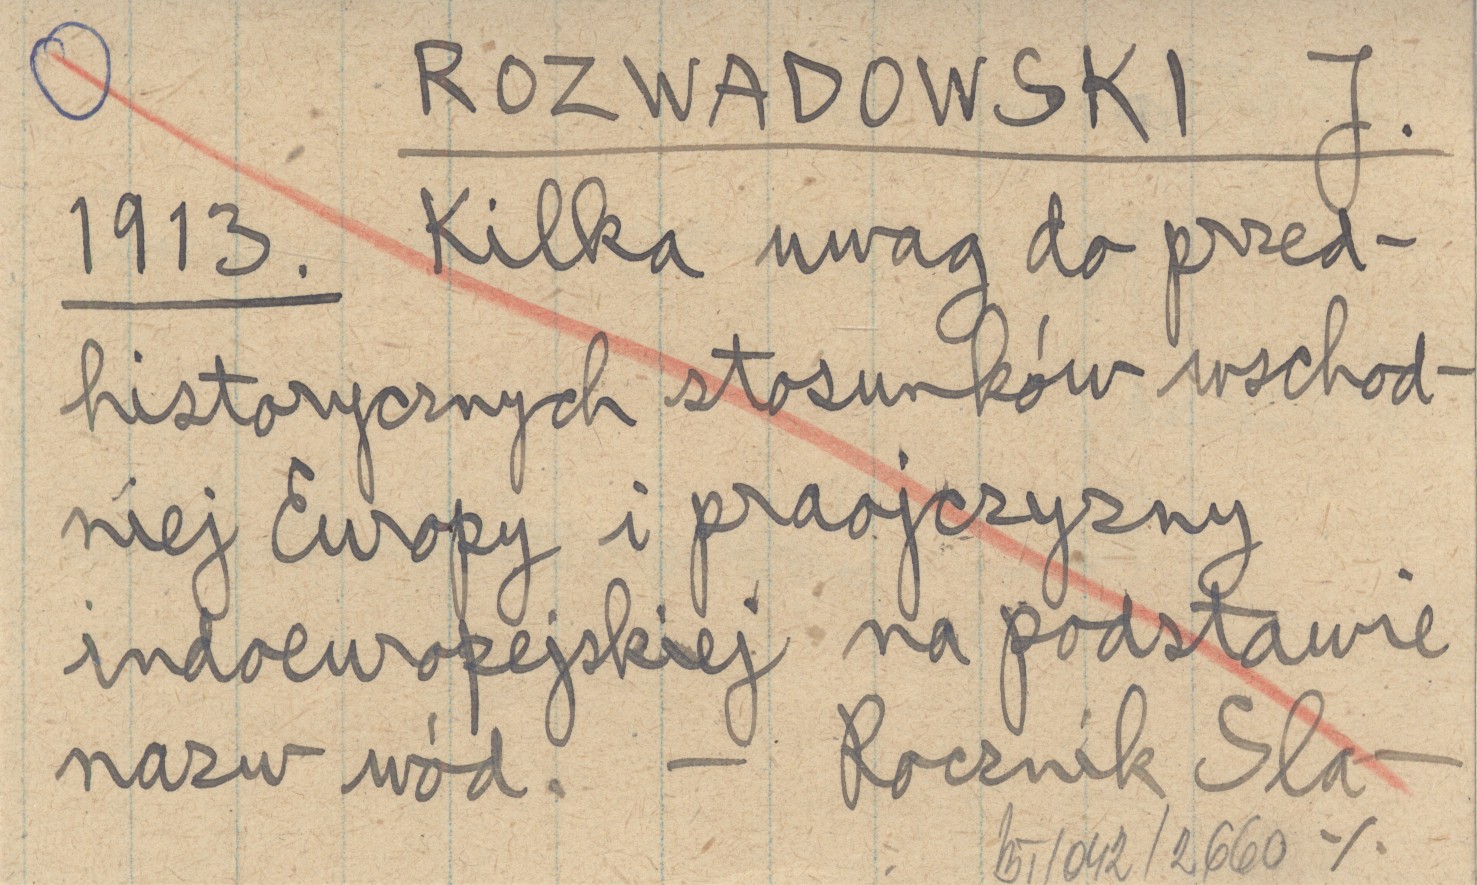 ROZWADOWSKI J.
1913. Kilka uwag do przed-
historycznych stosunków wschod-
niej Europy i praojczyzny
indoeuropejskiej na podstawie
nazw wód. — Rocznik Sla-
/042/2660 ⁒